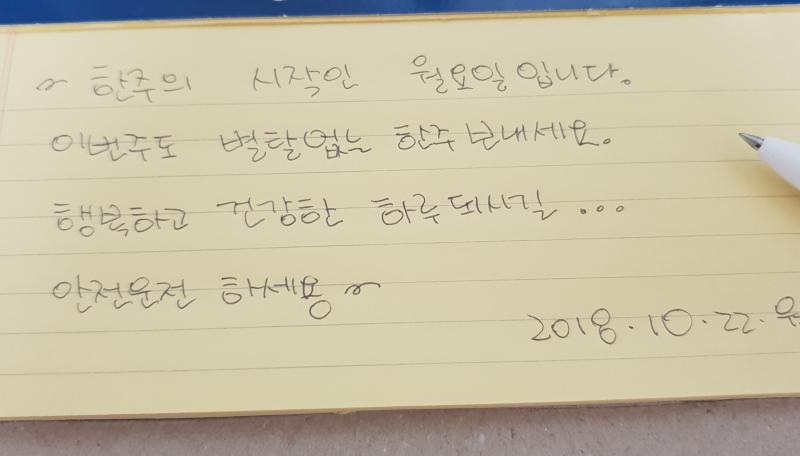 ~ 한주의 시작인 월요일입니다.
이번주도 별탈없는 한주 보내세요.
행복하고 건강한 하루 되시길 ...
안전운전 하세용~
2018.10.22.월